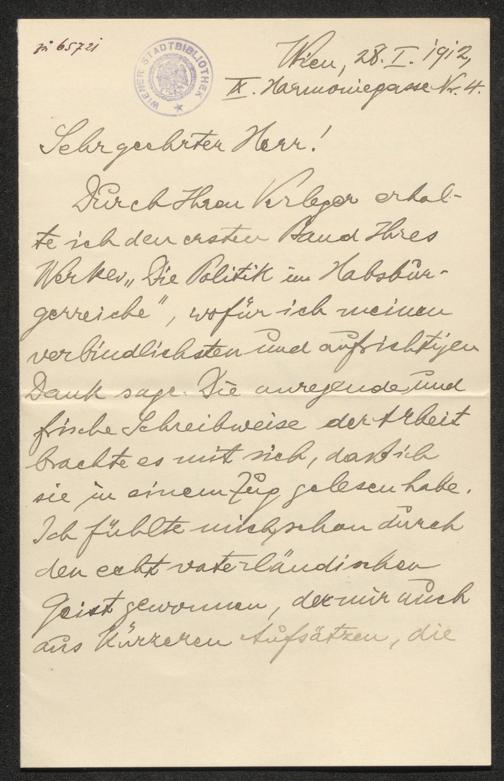 65721
WIENER STADTBIBLIOTHEK
Wien, 28. I. 1912,
IX. Harmoniegasse Nr. 4.
Sehr geehrter Herr!
Durch Ihren Verleger erhal-
te ich den ersten Band Ihres
Werkes „Die Politik im Habsbur-
gerreiche", wofür ich meinen
verbindlichsten und aufrichtigen
Dank sage. Die anregende und
frische Schreibweise der Arbeit
brachte es mit sich, dass ich
sie in einem Zug gelesen habe.
Ich fühlte mich schon durch
den echt vaterländischen
Geist gewonnen, der mir auch
aus kürzeren Aufsätzen, die